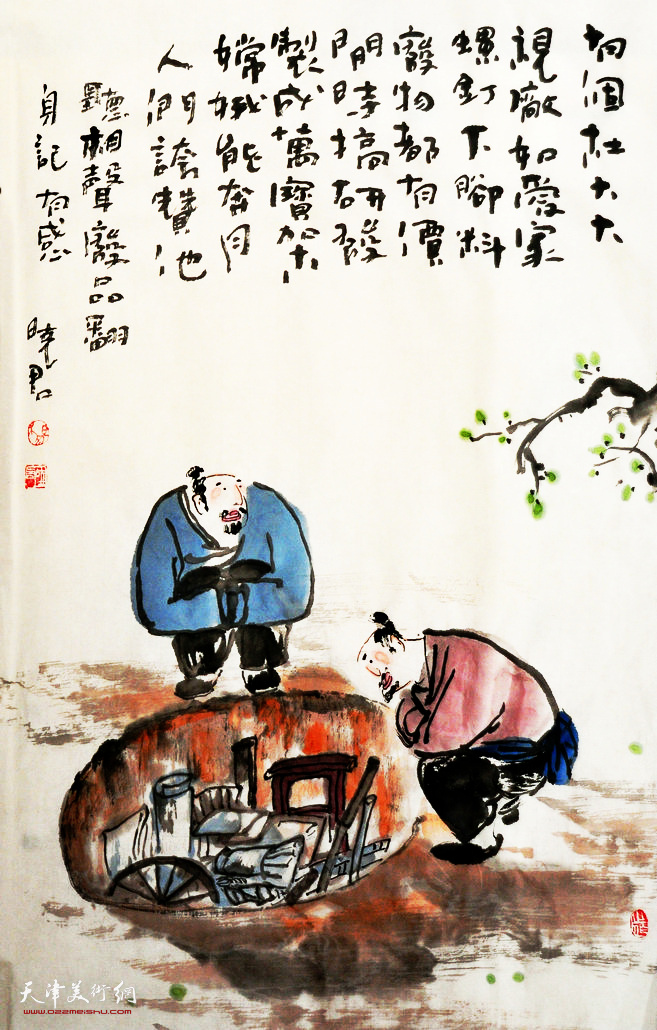 有個杜大大
視廠如愛家
螺釘下腳料
廢物都有價
閒時搞研發
製成萬寶架
嫦娥能奔月
人們誇贊他
聽相聲廢品翻
身記有感
曉君
天津美術網
www.022meishu.com